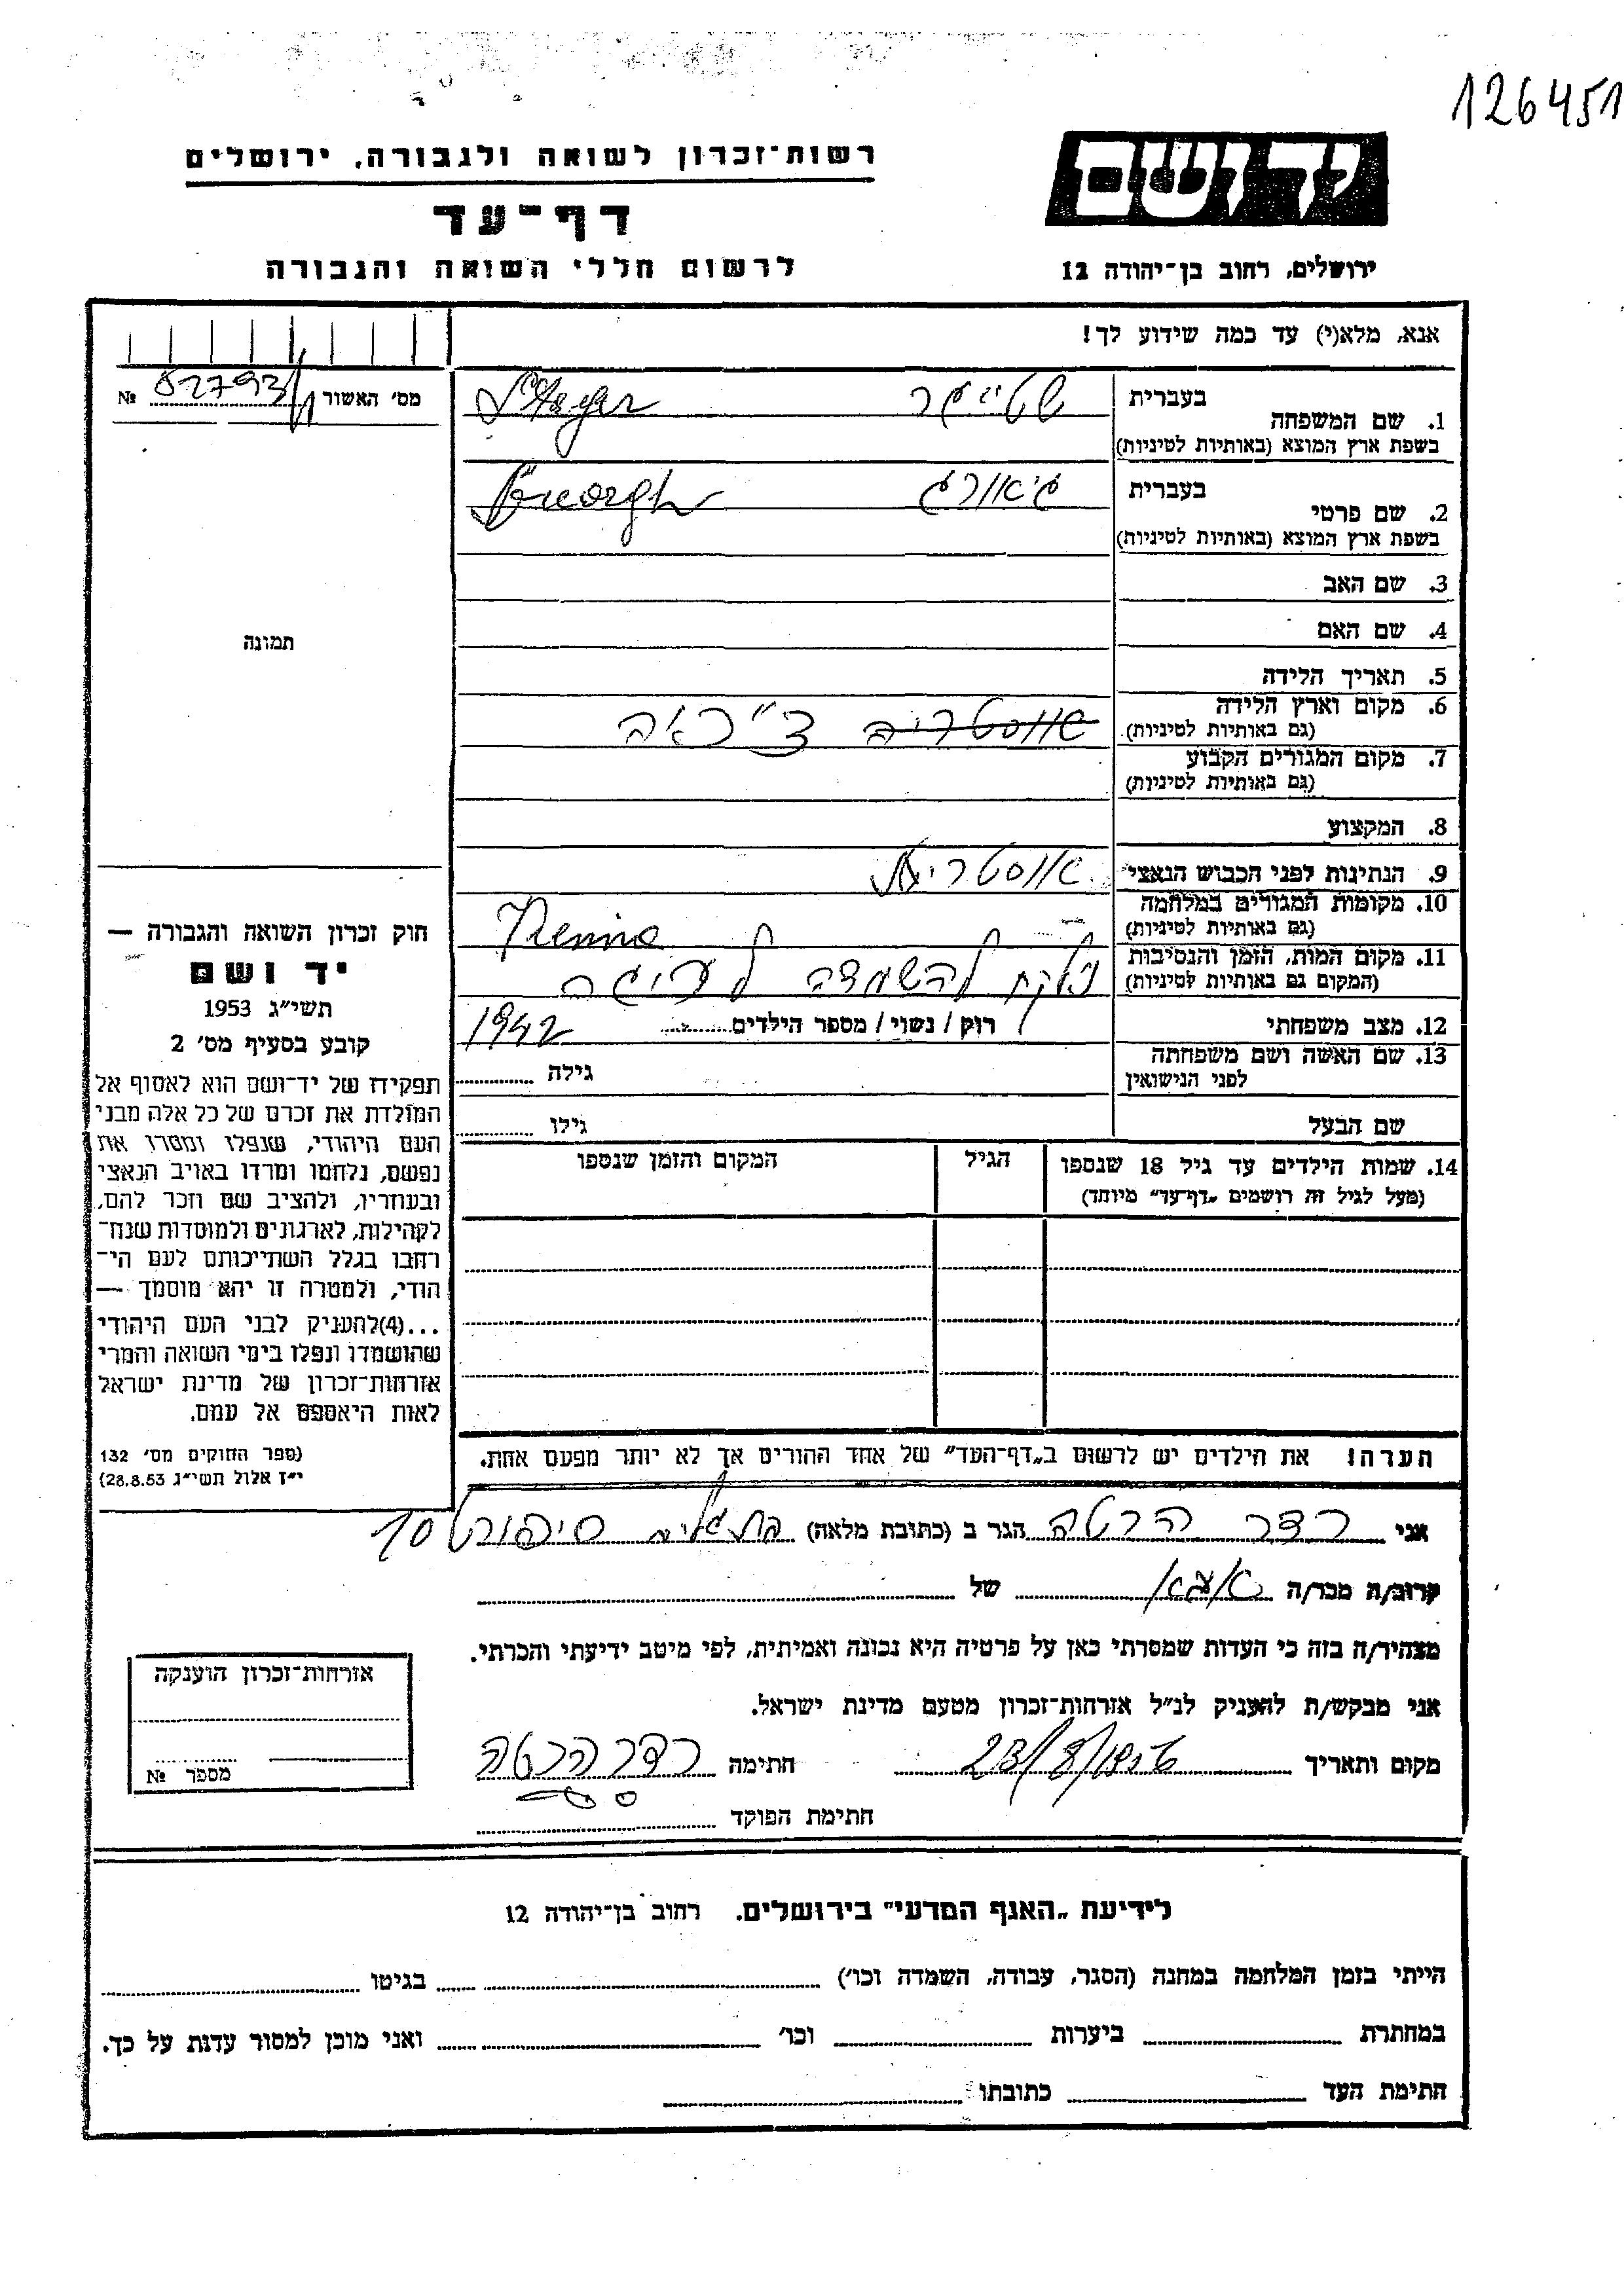 126451
רשות־זכרון לשואה ולגבורה, ירושלים
יד ושם
דף־עד
לרשום חללי השואה והגבורה
ירושלים, רחוב בן־יהודה 12
אנא, מלא(י) עד כמה שידוע לך!
מס׳ האשור № 82793
1. שם המשפחה בעברית שטייגר
בשפת ארץ המוצא (באותיות לטיניות)
2. שם פרטי בעברית גיאורג
בשפת ארץ המוצא (באותיות לטיניות)
3. שם האב
4. שם האם
תמונה
5. תאריך הלידה
6. מקום וארץ הלידה צ״כאה
(גם באותיות לטיניות)
7. מקום המגורים הקבוע
(גם באותיות לטיניות)
8. המקצוע
9. הנתינות לפני הכבוש הנאצי אוסטרית
10. מקומות המגורים במלחמה
(גם באותיות לטיניות)
11. מקום המות, הזמן והנסיבות נלקח להשמדה
(המקום גם באותיות לטיניות)
12. מצב משפחתי רוק / נשוי / מספר הילדים 1942
13. שם האשה ושם משפחתה גילה
לפני הנישואין
שם הבעל גילו
14. שמות הילדים עד גיל 18 שנספו הגיל המקום והזמן שנספו
(מעל לגיל זה רושמים „דף־עד״ מיוחד)
חוק זכרון השואה והגבורה —
יד ושם
תשי״ג 1953
קובע בסעיף מס׳ 2
תפקידו של יד־ושם הוא לאסוף אל
המולדת את זכרם של כל אלה מבני
העם היהודי, שנפלו ומסרו את
נפשם, נלחמו ומרדו באויב הנאצי
ובעוזריו, ולהציב שם וזכר להם,
לקהילות, לארגונים ולמוסדות שנח־
רבו בגלל השתייכותם לעם הי־
הודי, ולמטרה זו יהא מוסמך —
...(4) להעניק לבני העם היהודי
שהושמדו ונפלו בימי השואה והמרי
אזרחות־זכרון של מדינת ישראל
לאות היאספם אל עמם.
(ספר החוקים מס׳ 132
י״ז אלול תשי״ג 28.8.53)
הערה! את הילדים יש לרשום ב„דף־העד״ של אחד ההורים אך לא יותר מפעם אחת.
אני רדר הרטה הגר ב (כתובת מלאה) בת גלים 10
קרוב/ה מכר/ה של
מצהיר/ה בזה כי העדות שמסרתי כאן על פרטיה היא נכונה ואמיתית, לפי מיטב ידיעתי והכרתי.
אני מבקש/ת להעניק לנ״ל אזרחות־זכרון מטעם מדינת ישראל.
מקום ותאריך 23/8/ חתימה רדר הרטה
חתימת הפוקד
אזרחות־זכרון הוענקה
מספר №
לידיעת „האגף המדעי״ בירושלים. רחוב בן־יהודה 12
הייתי בזמן המלחמה במחנה (הסגר, עבודה, השמדה וכו׳) בגיטו
במחתרת ביערות וכו׳ ואני מוכן למסור עדות על כך.
חתימת העד כתובתו